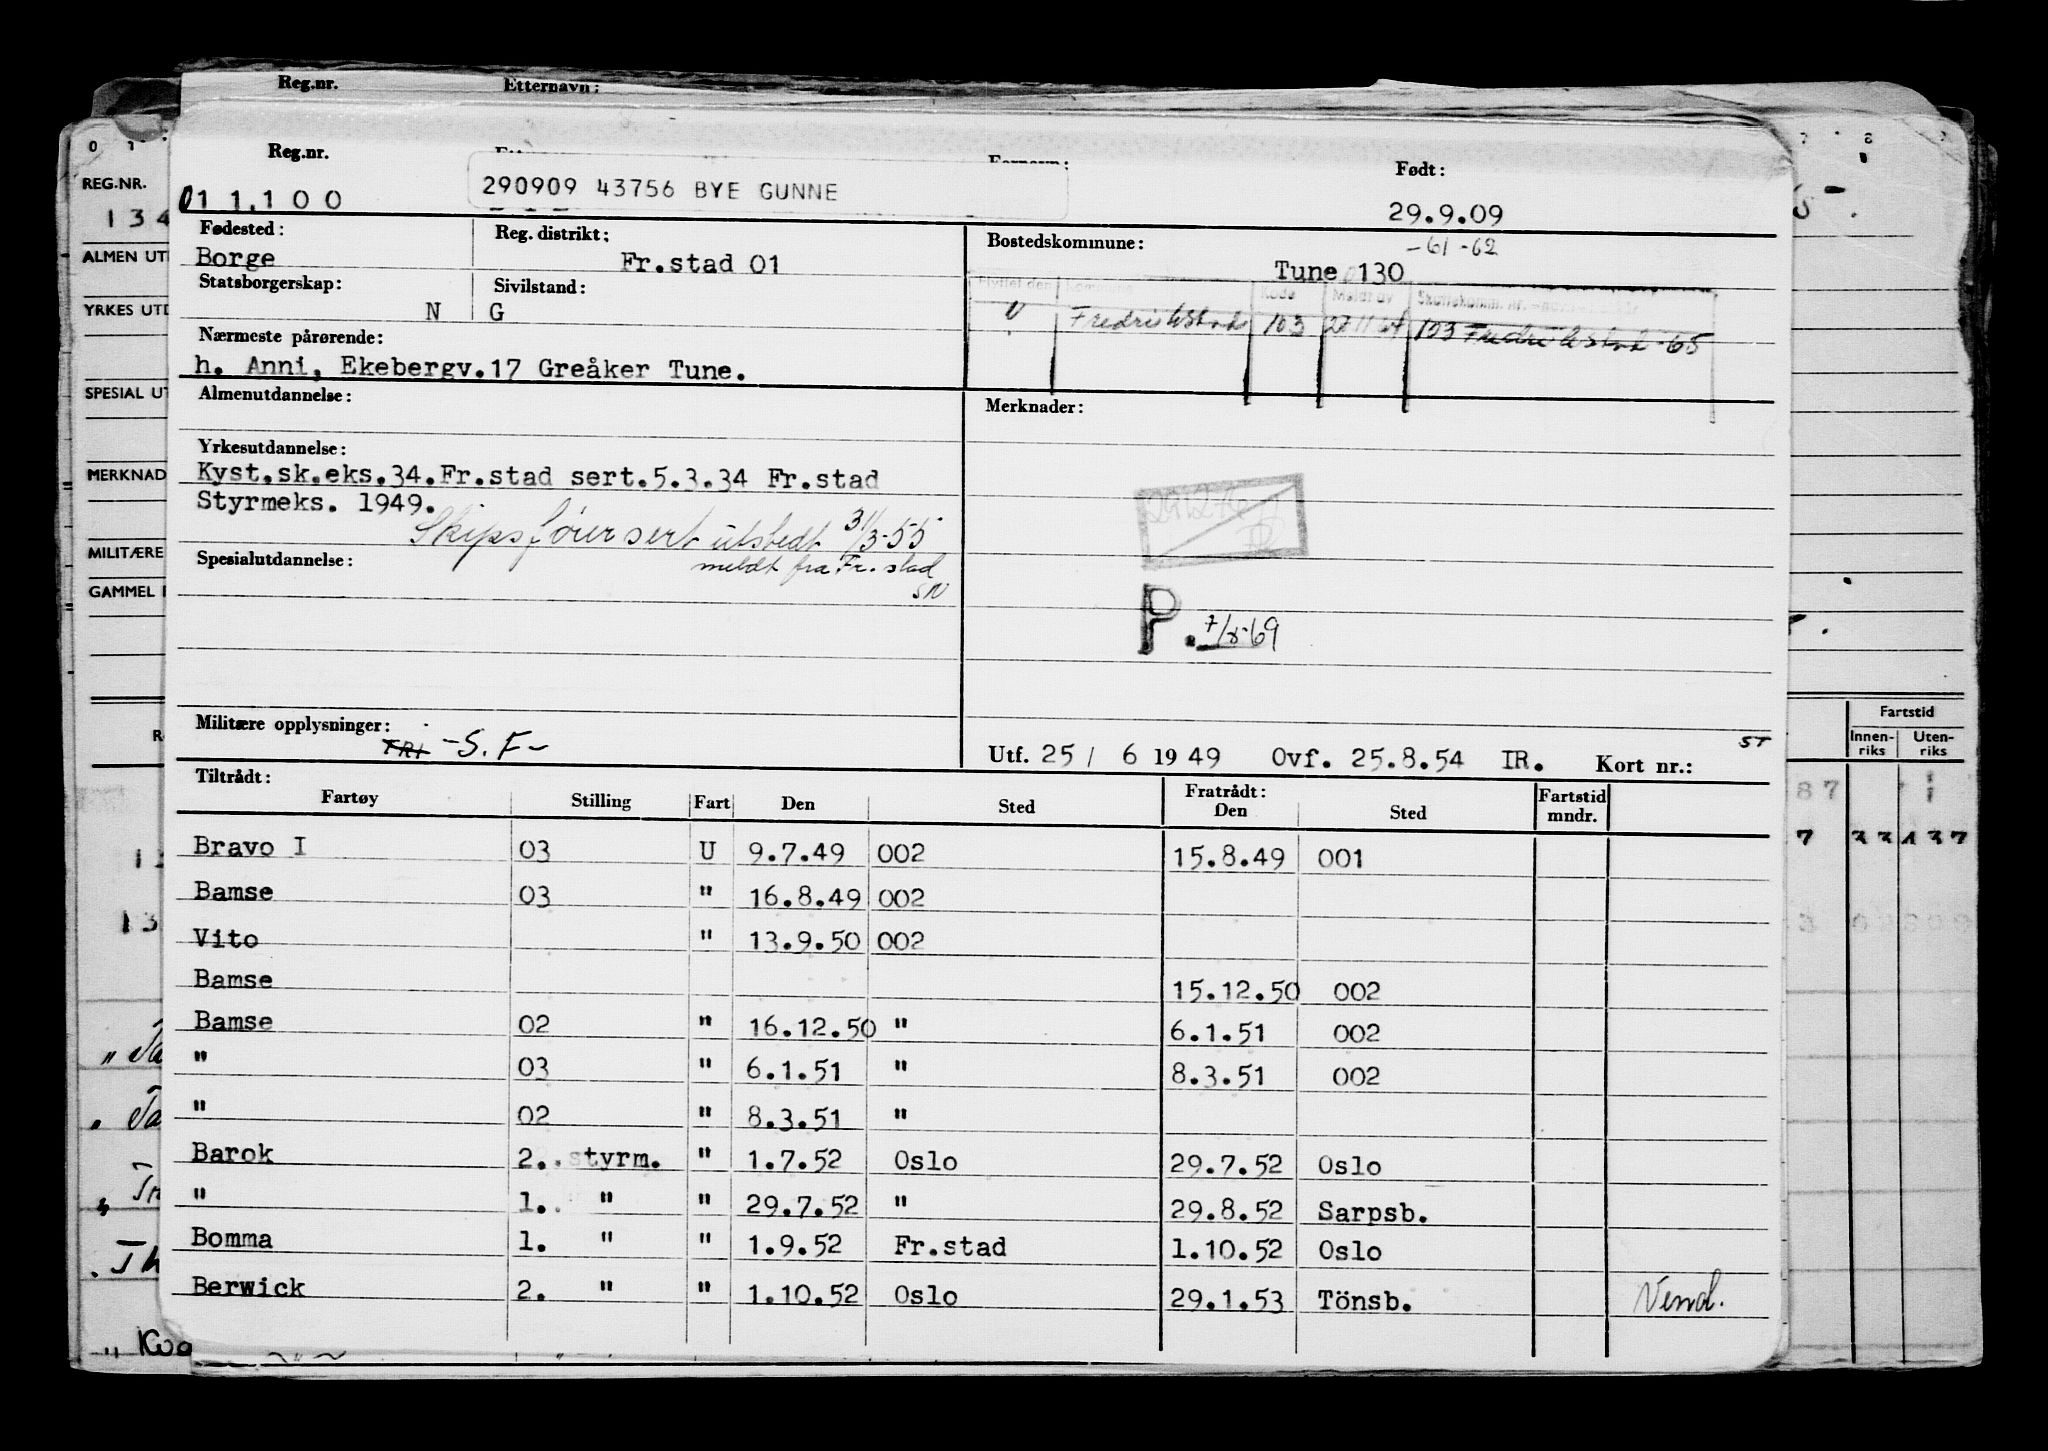 Reg.nr. Etternavn:
Reg.nr. Født:
011.100 290909 43756 BYE GUNNE 29.9.09
Fødested: Reg. distrikt: Bostedskommune: -61-62
Borge Fr.stad 01 Tune 0130
Statsborgerskap: Sivilstand:
Flyttet den Kommune Kode Meldt av
N G
Fredrikstad 103 103 Fredrikstad -65
Nærmeste pårørende:
h. Anni, Ekebergv.17 Greåker Tune.
Almenutdannelse: Merknader:
Yrkesutdannelse:
Kyst.sk.eks.34.Fr.stad sert.5.3.34 Fr.stad
Styrmeks. 1949.
Skipsførersert utstedt 31/3-55
meldt fra Fr.stad
SN
Spesialutdannelse:
P. 7/8-69
Militære opplysninger:
FRI -S.F-
Utf. 25/ 6 1949 Ovf. 25.8.54 IR. Kort nr.:
ST
Tiltrådt: Fratrådt:
Fartøy Stilling Fart Den Sted Den Sted Fartstid mndr.
Bravo I 03 U 9.7.49 002 15.8.49 001
Bamse 03 " 16.8.49 002
Vito " 13.9.50 002
Bamse 15.12.50 002
Bamse 02 " 16.12.50 " 6.1.51 002
" 03 " 6.1.51 " 8.3.51 002
" 02 " 8.3.51 "
Barok 2. styrm. " 1.7.52 Oslo 29.7.52 Oslo
" 1. " " 29.7.52 " 29.8.52 Sarpsb.
Bomma 1. " " 1.9.52 Fr.stad 1.10.52 Oslo
Berwick 2. " " 1.10.52 Oslo 29.1.53 Tönsb. Vend.
REG.NR.
134
ALMEN UT
YRKES UTD
SPESIAL UT
MERKNAD
MILITÆRE
GAMMEL
Fartstid
Innenriks Utenriks